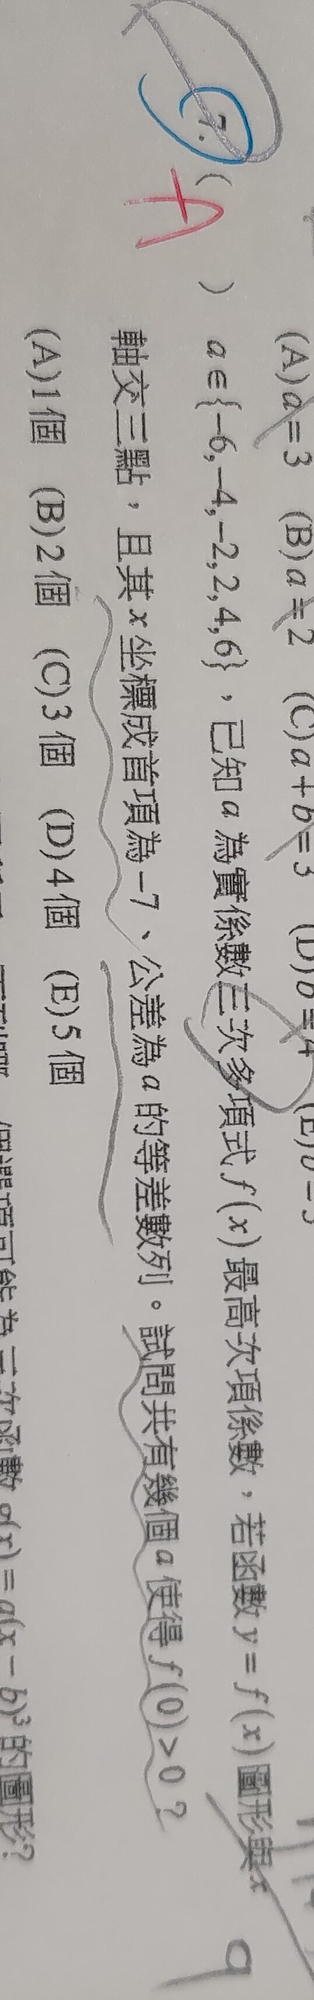 (A)a=3 (B)a=2 (C)a+b=3 (D)b=4 (E)b=3
7. ( ) a∈{−6,−4,−2,2,4,6},已知a為實係數三次多項式f(x)最高次項係數,若函數y=f(x)圖形與x
A
軸交三點,且其x坐標成首項為−7、公差為a的等差數列。試問共有幾個a使得f(0)>0?
(A)1個 (B)2個 (C)3個 (D)4個 (E)5個
個選項可能為三次函數g(x)=a(x−b)³的圖形?